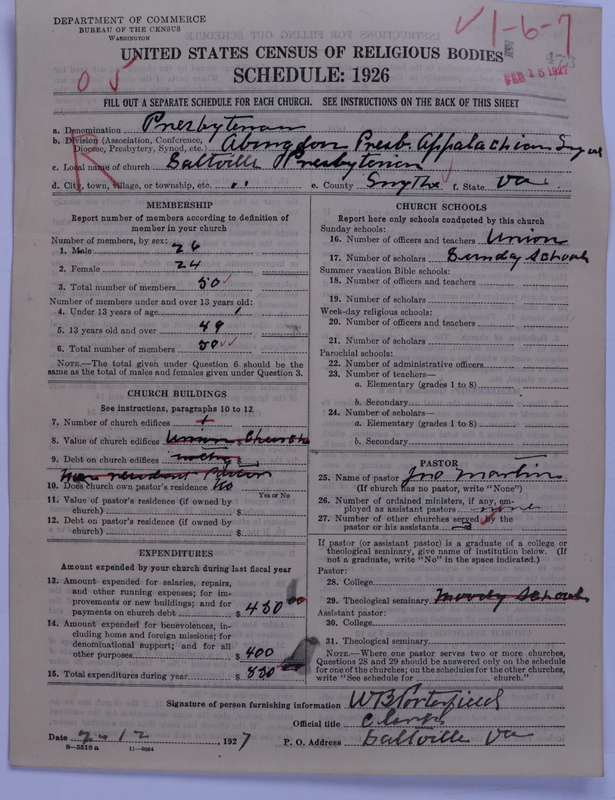 DEPARTMENT OF COMMERCE
BUREAU OF THE CENSUS
WASHINGTON
1-6-7
FEB 15 1927
UNITED STATES CENSUS OF RELIGIOUS BODIES
SCHEDULE: 1926
FILL OUT A SEPARATE SCHEDULE FOR EACH CHURCH. SEE INSTRUCTIONS ON THE BACK OF THIS SHEET
a. Denomination Presbyterian
b. Division (Association, Conference, Diocese, Presbytery, Synod, etc.) Abingdon Presb. Appalachian Synod
c. Local name of church Saltville Presbyterian
d. City, town, village, or township, etc. " e. County Smythe f. State Va
MEMBERSHIP
Report number of members according to definition of
member in your church
Number of members, by sex:
1. Male 26
2. Female 24
3. Total number of members 50
Number of members under and over 13 years old:
4. Under 13 years of age 1
5. 13 years old and over 49
6. Total number of members 50
NOTE.—The total given under Question 6 should be
same as the total of males and females given under Question 3.
CHURCH BUILDINGS
See instructions, paragraphs 10 to 12
7. Number of church edifices
8. Value of church edifices Union Church
9. Debt on church edifices
Non resident
10. Does church own pastor's residence No
Yes or No
11. Value of pastor's residence (if owned by
church) $
12. Debt on pastor's residence (if owned by
church) $
EXPENDITURES
Amount expended by your church during last fiscal year
13. Amount expended for salaries, repairs,
and other running expenses; for im-
provements or new buildings; and for
payments on church debt $ 450 00
14. Amount expended for benevolences, in-
cluding home and foreign missions; for
denominational support; and for all
other purposes $ 400
15. Total expenditures during year $ 850
CHURCH SCHOOLS
Report here only schools conducted by this church
Sunday schools:
16. Number of officers and teachers Union
17. Number of scholars Sunday Schools
Summer vacation Bible schools:
18. Number of officers and teachers
19. Number of scholars
Week-day religious schools:
20. Number of officers and teachers
21. Number of scholars
Parochial schools:
22. Number of administrative officers
23. Number of teachers—
a. Elementary (grades 1 to 8)
b. Secondary
24. Number of scholars—
a. Elementary (grades 1 to 8)
b. Secondary
PASTOR
25. Name of pastor Jno Martin
(If church has no pastor, write "None")
26. Number of ordained ministers, if any, em-
ployed as assistant pastors none
27. Number of other churches served by the
pastor or his assistants
If pastor (or assistant pastor) is a graduate of a college or
theological seminary, give name of institution below. (If
not a graduate, write "No" in the space indicated.)
Pastor:
28. College
29. Theological seminary Moody Schools
Assistant pastor:
30. College
31. Theological seminary
NOTE.—Where one pastor serves two or more churches,
Questions 28 and 29 should be answered only on the schedule
for one of the churches; on the schedules for the other churches,
write "See schedule for church."
Signature of person furnishing information W B Porterfield
Official title Clerk
Date 2-12, 1927 P. O. Address Saltville Va
8-5518a 11-9054